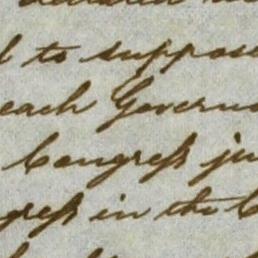 to suppose
each Govern
Congress ju
gress in the C